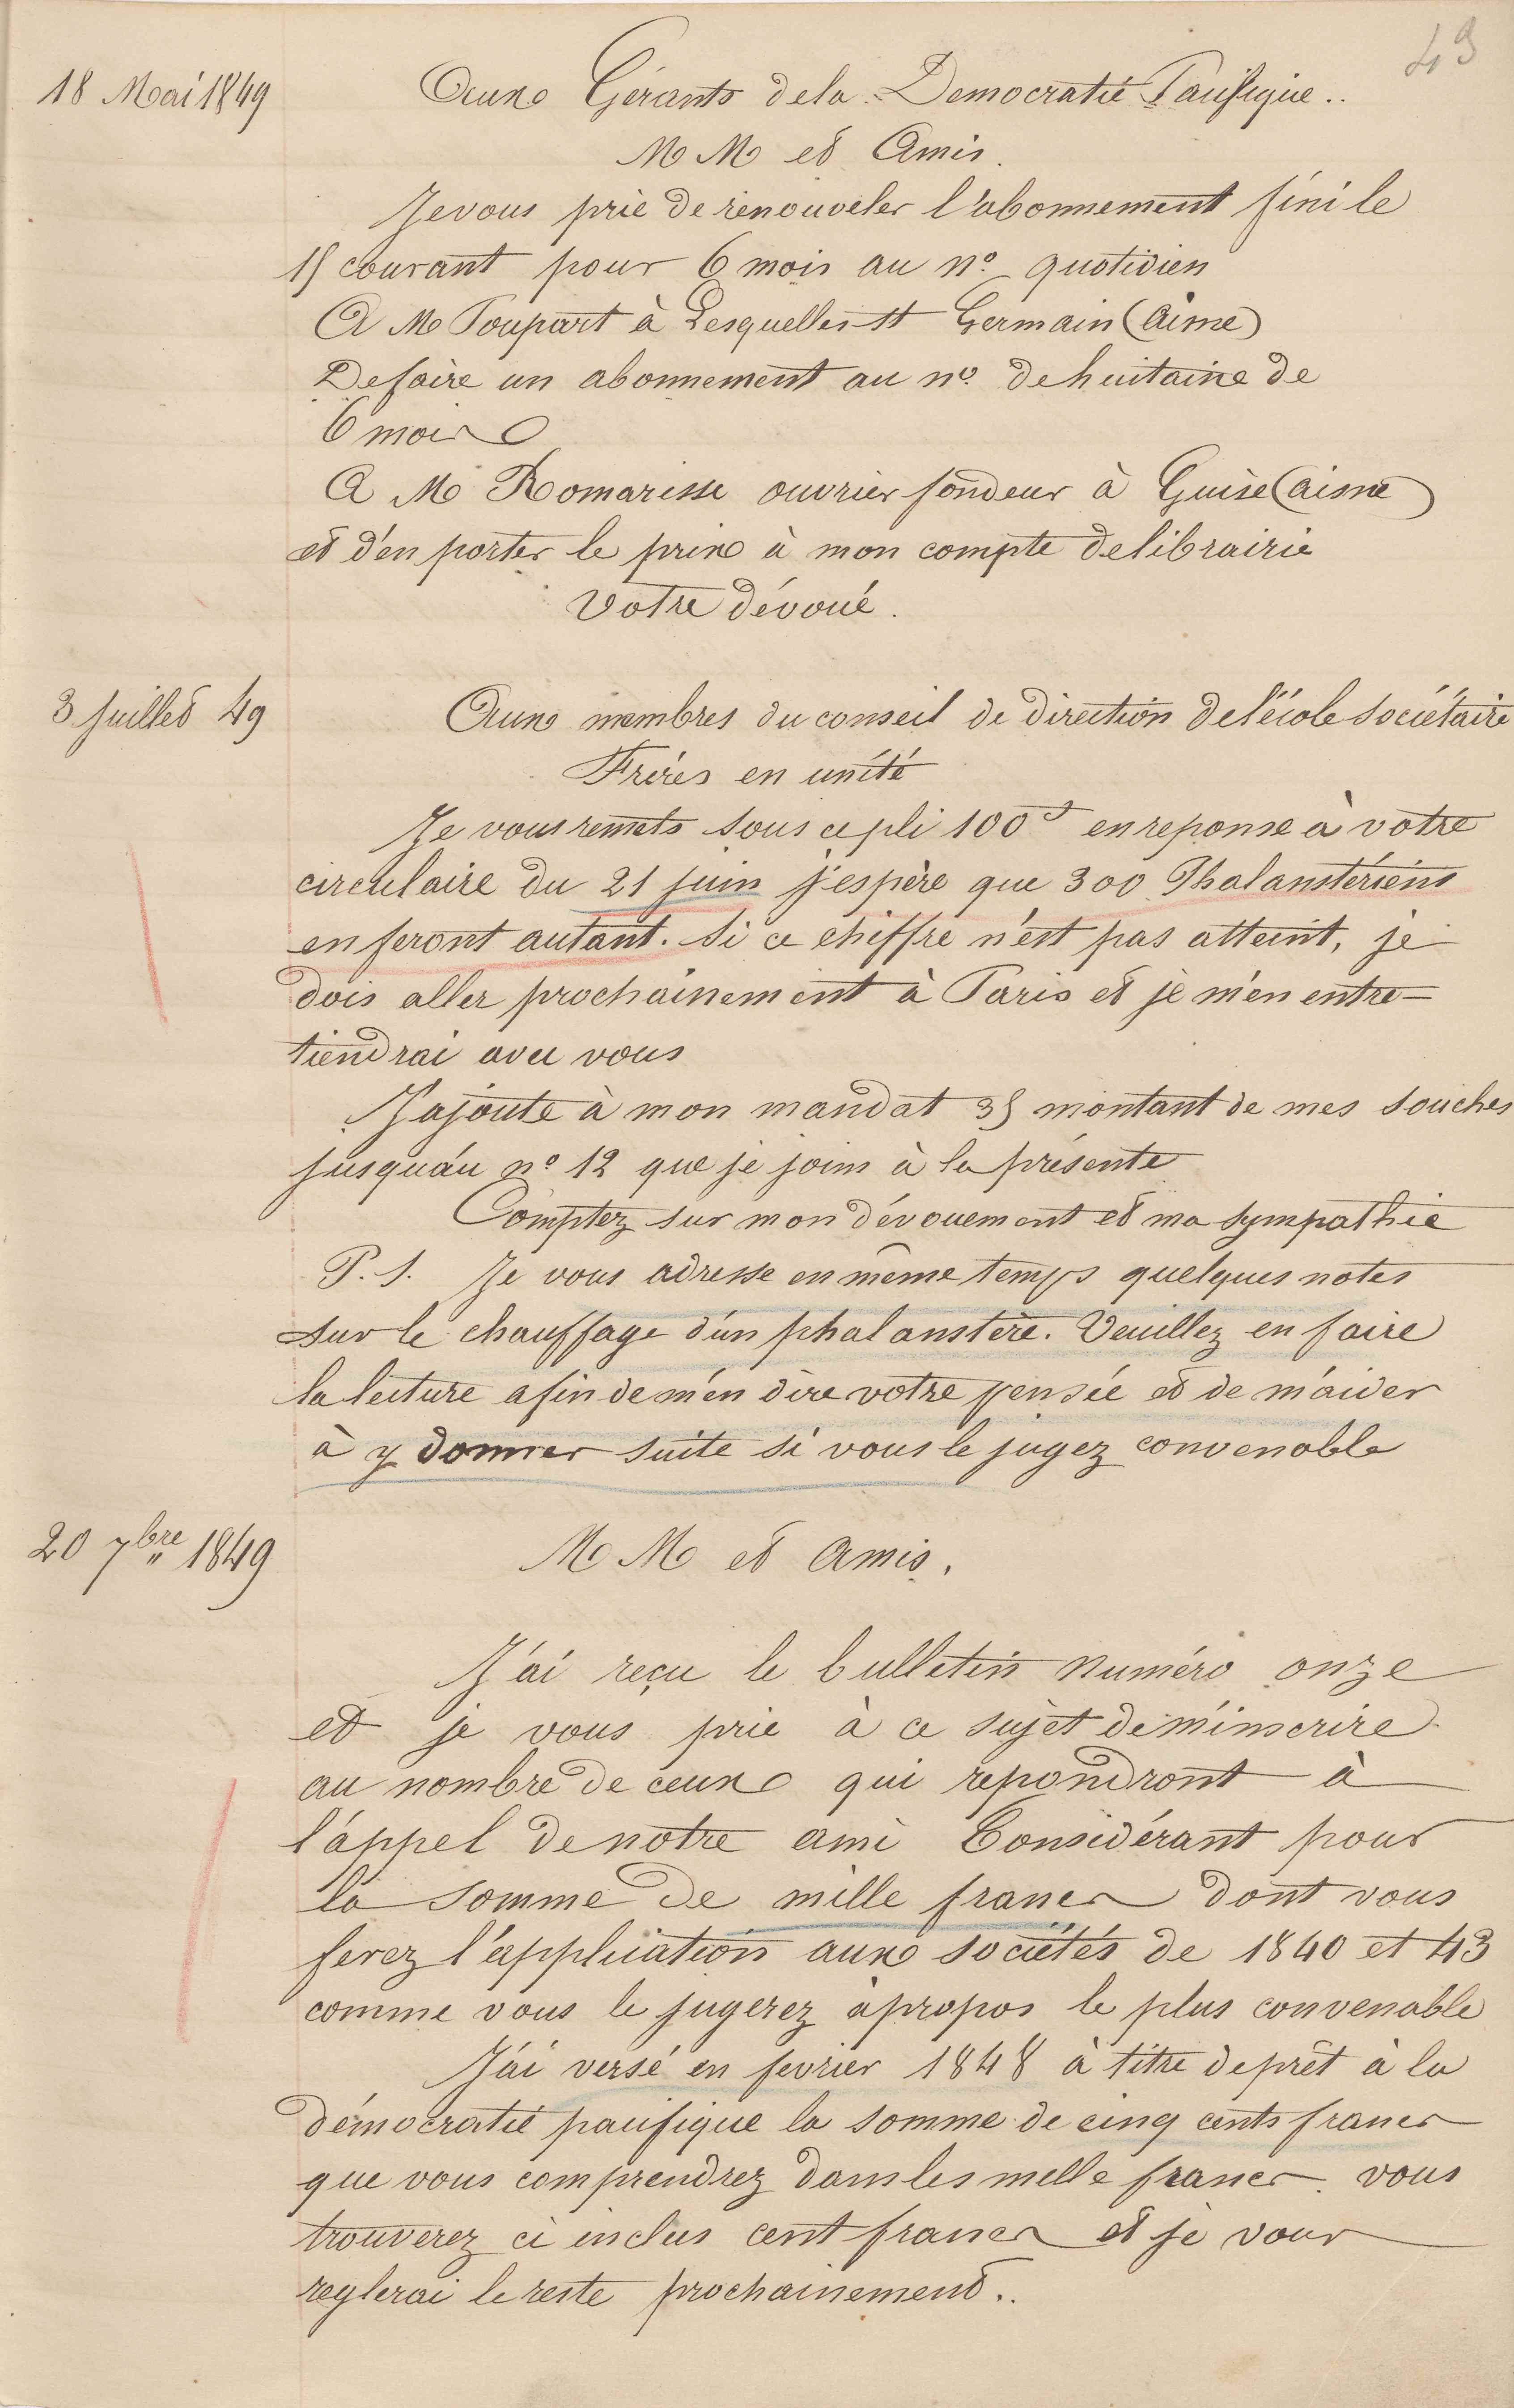 43
18 Mai 1849
Aux Gérants de la Democratie Pacifique..
M M et Amis.
Je vous prie de renouveler l'abonnement fini le
15 courant pour 6 mois au n° quotidien
A M Poupart à Lesquelles st Germain (aisne)
De faire un abonnement au n° de huitaine de
6 mois
A M Romarisse ouvrier fondeur à Guise (aisne)
et d'en porter le prix à mon compte de librairie
Votre dévoué.
3 Juillet 49
Aux membres du conseil de direction de l'école sociétaire
Frères en unité
Je vous remets sous ce pli 100 f en reponse à votre
circulaire du 21 juin j'espère que 300 Phalanstériens
en feront autant. Si ce chiffre n'est pas atteint, je
dois aller prochainement à Paris et je m'en entre-
tiendrai avec vous
J'ajoute à mon mandat 35 montant de mes souches
jusqu'au n° 12 que je joins à la présente
Comptez sur mon dévouement et ma sympathie
P. S. Je vous adresse en même temps quelques notes
sur le chauffage d'un phalanstère. Veuillez en faire
la lecture afin de m'en dire votre pensée et de m'aider
à y donner suite si vous le jugez convenable
20 7bre 1849
M M et Amis.
J'ai reçu le bulletin numéro onze
et je vous prie à ce sujet de m'inscrire
au nombre de ceux qui repondront à
l'appel de notre ami Considérant pour
la somme de mille francs dont vous
ferez l'application aux sociétés de 1840 et 43
comme vous le jugerez àpropos le plus convenable
J'ai versé en fevrier 1848 à titre de prêt à la
démocratie pacifique la somme de cinq cents francs
que vous comprendrez dans les melle francs. vous
trouverez ci inclus cent francs et je vous
reglerai le reste prochainement..